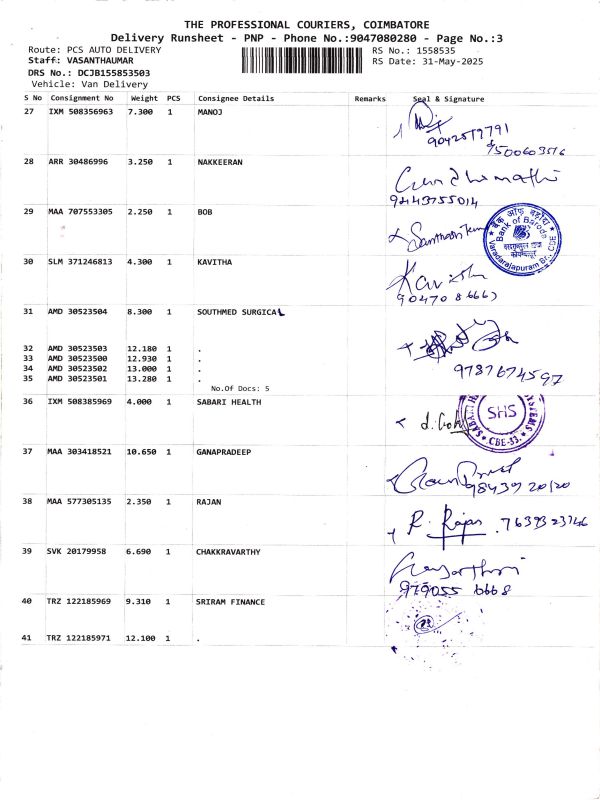 THE PROFESSIONAL COURIERS, COIMBATORE
Delivery Runsheet - PNP - Phone No.:9047080280 - Page No.:3
Route: PCS AUTO DELIVERY RS No.: 1558535
Staff: VASANTHAUMAR RS Date: 31-May-2025
DRS No.: DCJB155853503
Vehicle: Van Delivery
S No Consignment No Weight PCS Consignee Details Remarks Seal & Signature
27 IXM 508356963 7.300 1 MANOJ
28 ARR 30486996 3.250 1 NAKKEERAN
9443755014
29 MAA 707553305 2.250 1 BOB
बैंक ऑफ़ बड़ौदा
Bank of Baroda
Varadarajapuram Br., CBE
30 SLM 371246813 4.300 1 KAVITHA
31 AMD 30523504 8.300 1 SOUTHMED SURGICAL
32 AMD 30523503 12.180 1 .
33 AMD 30523500 12.930 1 .
34 AMD 30523502 13.000 1 .
35 AMD 30523501 13.280 1 .
9787674597
No.Of Docs: 5
36 IXM 508385969 4.000 1 SABARI HEALTH
SHS
CBE-33.
37 MAA 303418521 10.650 1 GANAPRADEEP
9843920120
38 MAA 577305135 2.350 1 RAJAN
R. Rajan . 7639323746
39 SVK 20179958 6.690 1 CHAKKRAVARTHY
979055 6668
40 TRZ 122185969 9.310 1 SRIRAM FINANCE
41 TRZ 122185971 12.100 1 .